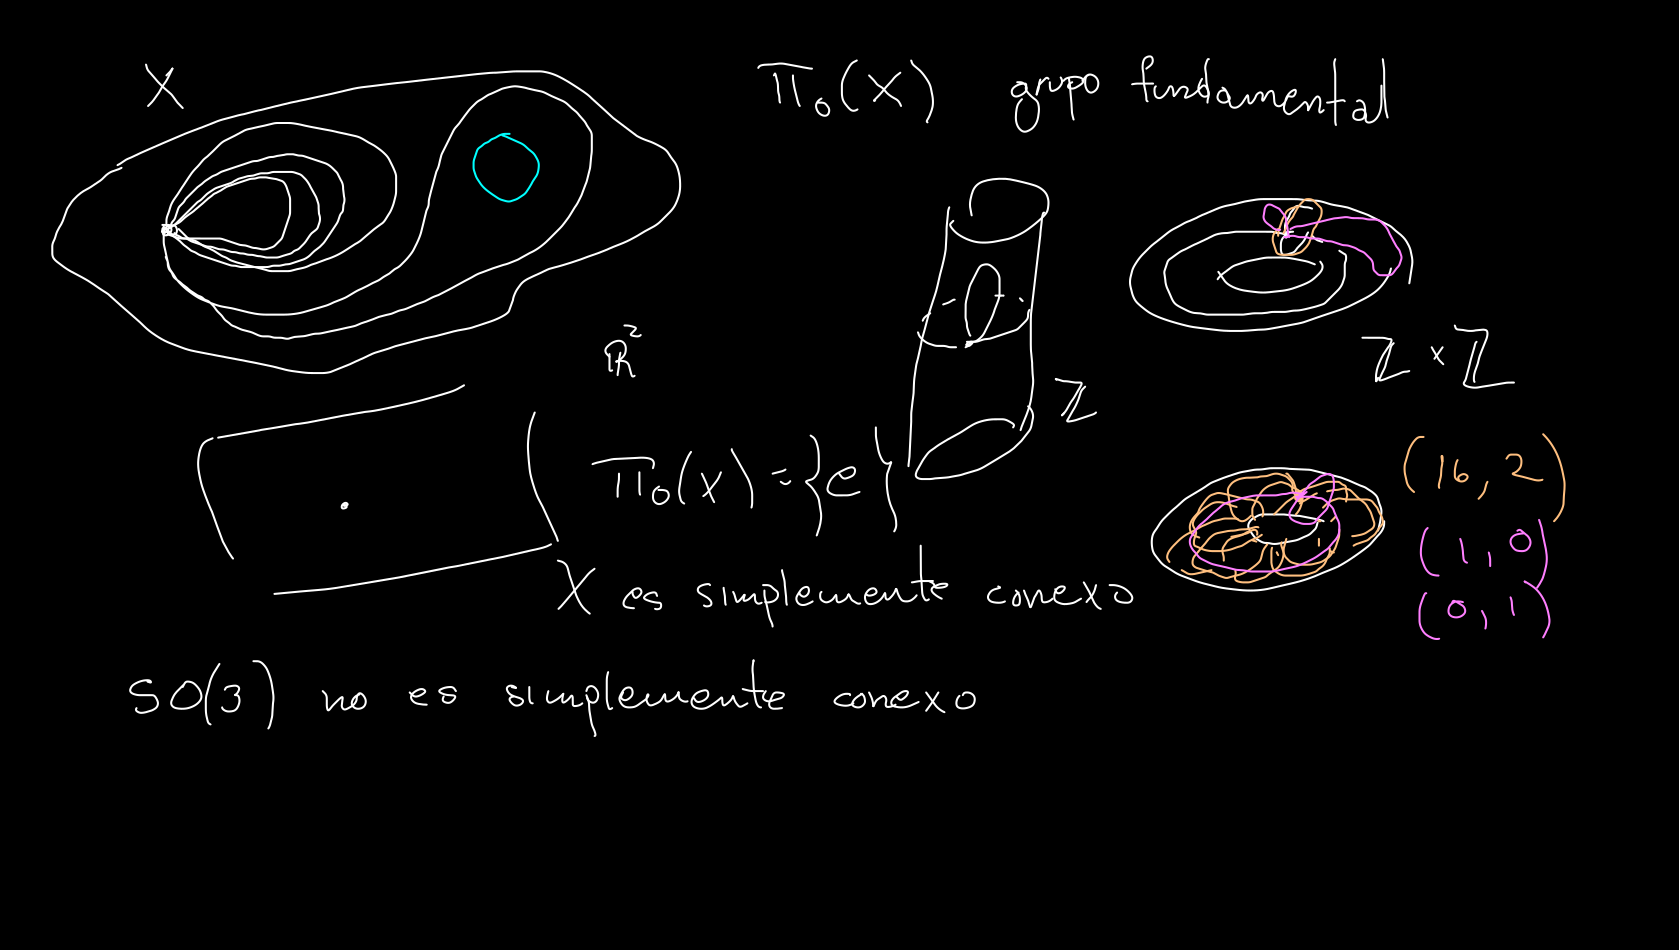 X
π₀(X) grupo fundamental
ℝ²
ℤ × ℤ
ℤ
π₀(X) = {e}
(16, 2)
(1, 0)
(0, 1)
X es simplemente conexo
SO(3) no es simplemente conexo